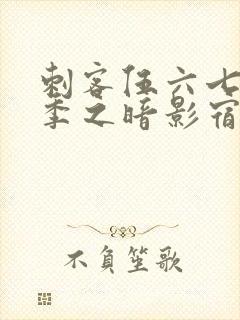 刺客伍六七
季之暗影宿
不負笙歌